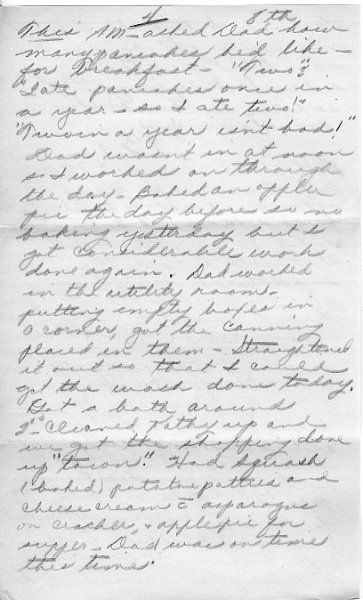 4 8th
This AM - asked Dad how
many pancakes he'd like -
for breakfast - "Two"?
I ate pancakes once in
a year - so I ate two!"
"Two in a year isn't bad!"
Dad wasn't in at noon
so I worked on through
the day - Baked an apple
pie the day before so no
baking yesterday but I
got considerable work
done again. Dad worked
in the utility room -
putting empty boxes in
a corner, got the canning
placed in them - Straightened
it out so that I could
get the wash done today.
Got a bath around
2" Cleaned Kathy up and
we got the shopping done
up "town". Had squash
(baked) potatoe patties and
cheese cream c̄ asparagus
on crackers, + apple pie for
supper - Dad was on time
this time.